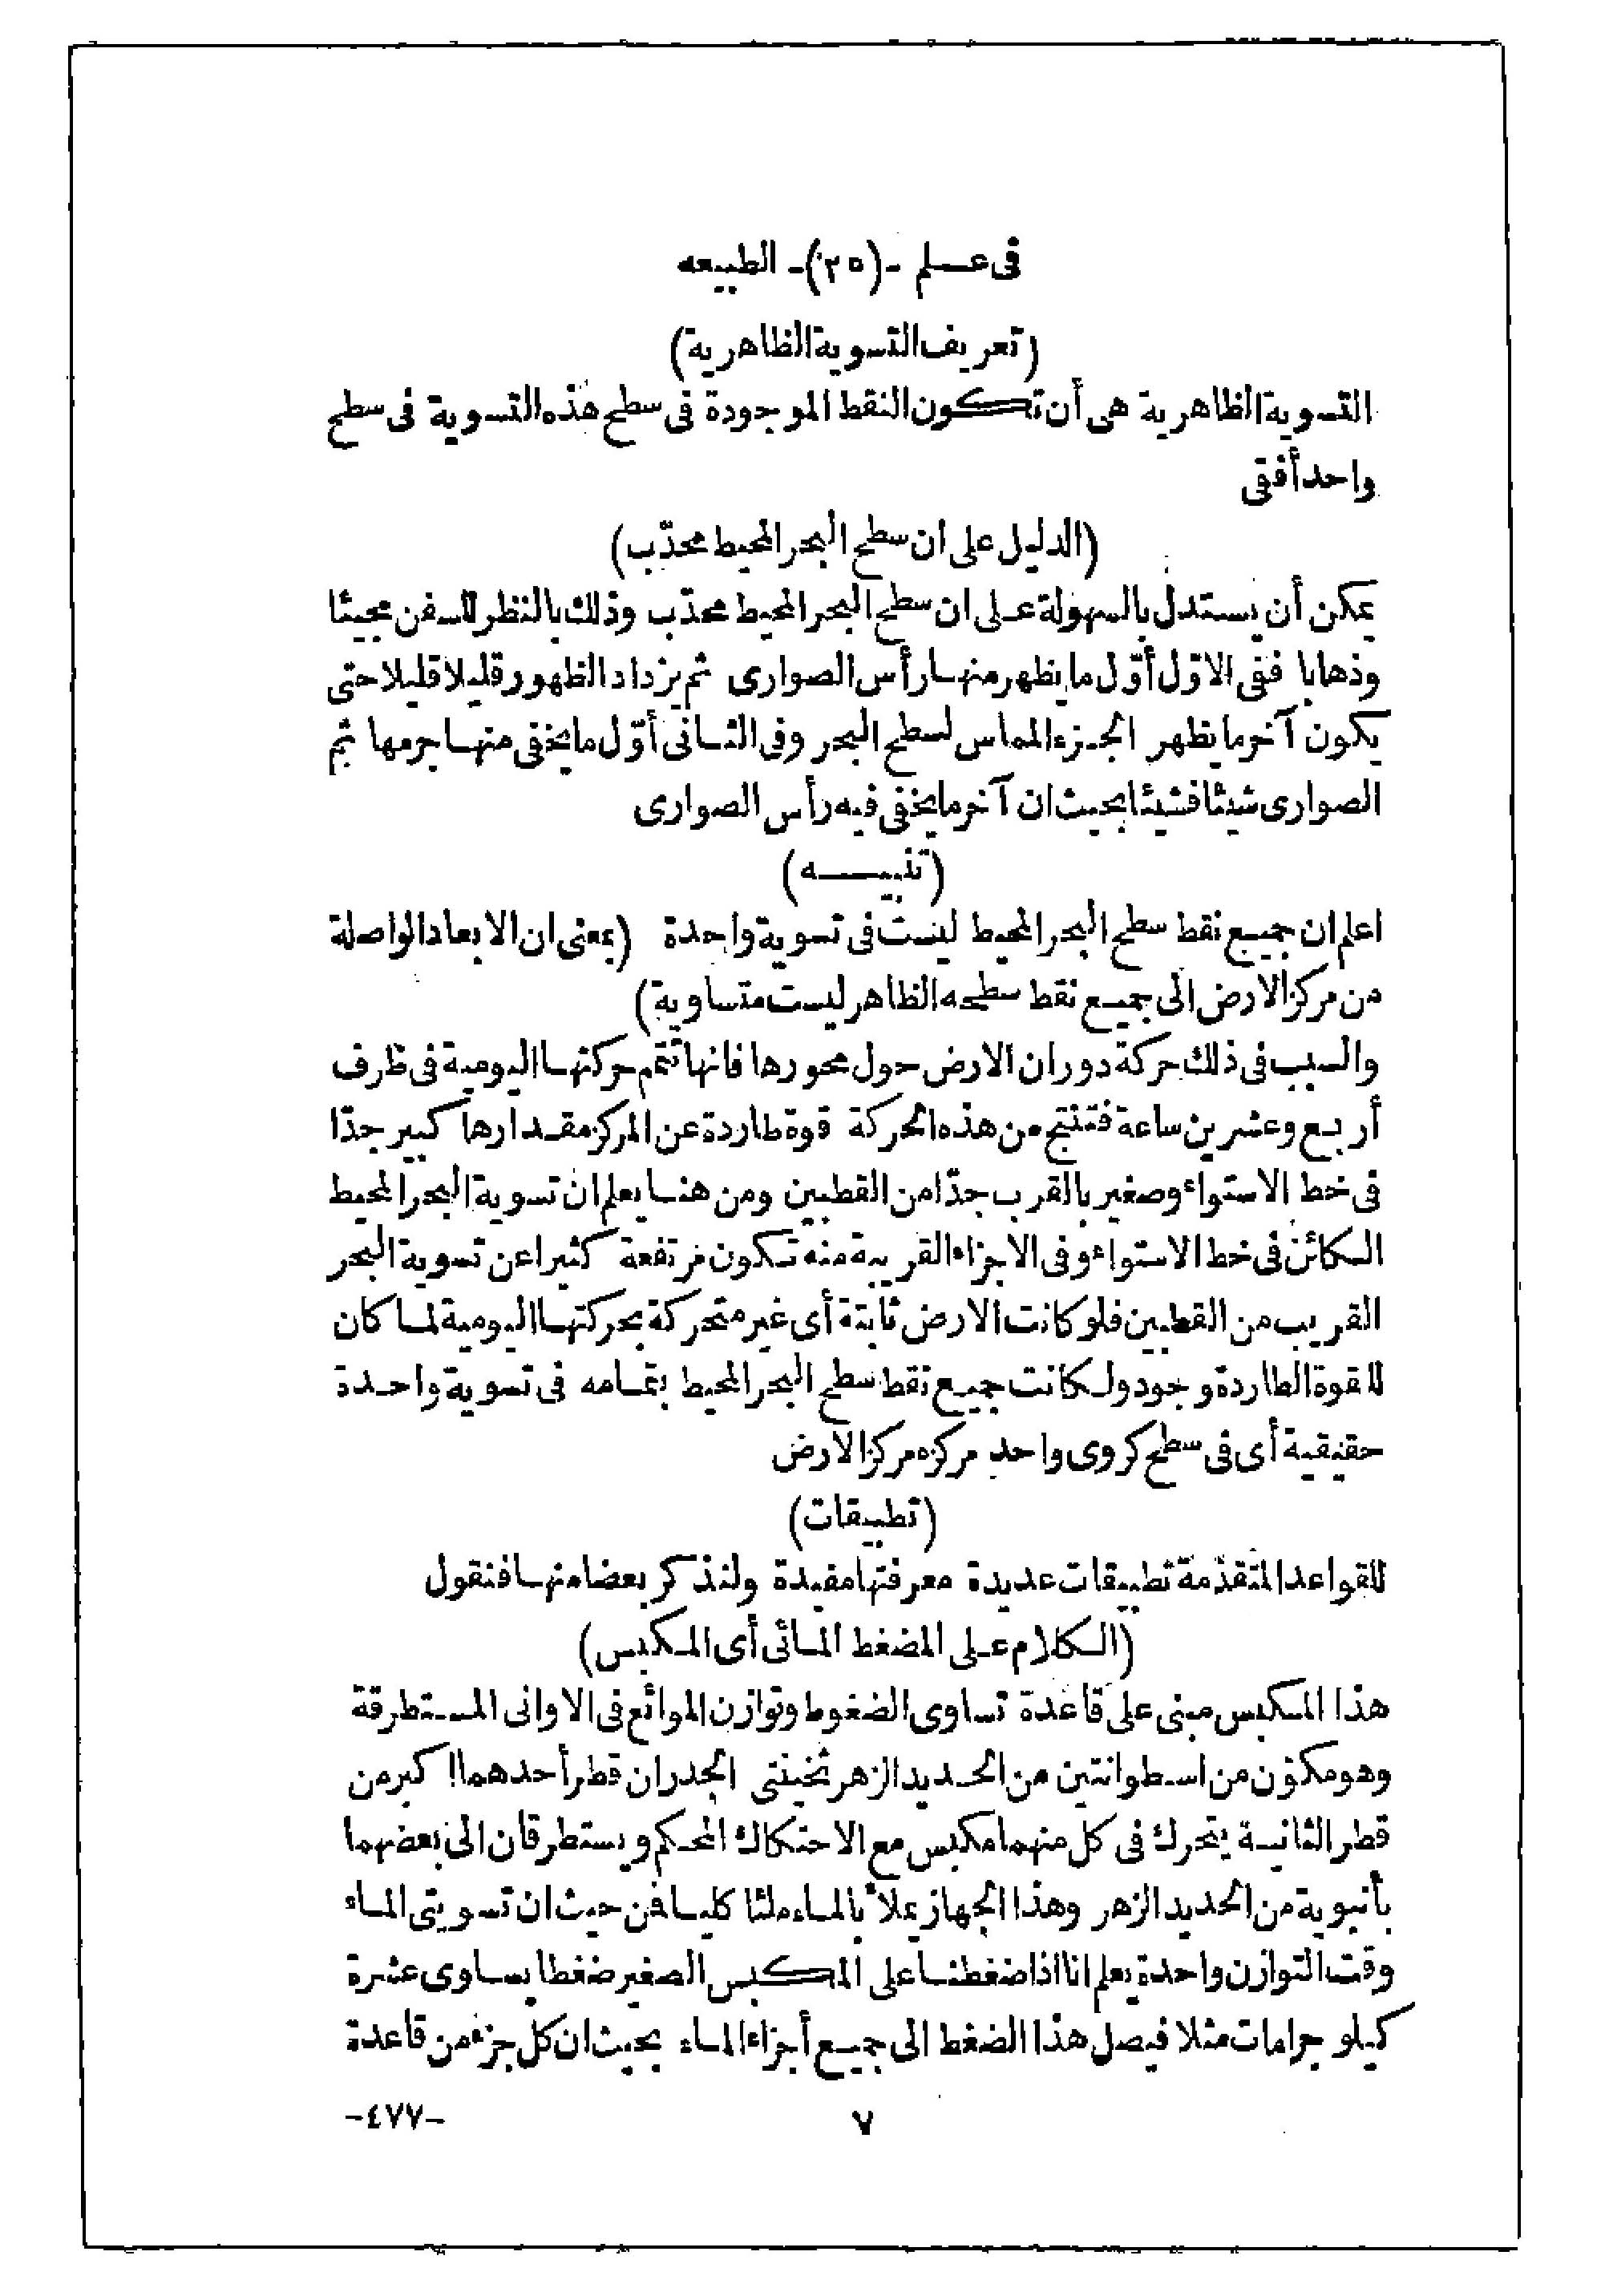 فى علم -(٢٥)- الطبيعه
(تعريف التسوية الظاهرية)
التسوية الظاهرية هى أن تكون النقط الموجودة فى سطح هذه التسوية فى سطح
واحد أفقى
(الدليل على ان سطح البحر المحيط محدّب)
يمكن أن يستدل بالسهولة على ان سطح البحر المحيط محدّب وذلك بالنظر للسفن مجيئا
وذهابا ففى الاوّل أوّل ما يظهر منها رأس الصوارى ثم يزداد الظهور قليلا قليلا حتى
يكون آخر ما يظهر الجزء المماس لسطح البحر وفى الثانى أوّل ما يخفى منها جرمها ثم
الصوارى شيئا فشيئا بحيث ان آخر ما يخفى فيه رأس الصوارى
(تنبيه)
اعلم ان جميع نقط سطح البحر المحيط ليست فى تسوية واحدة (بمعنى ان الابعاد الواصلة
من مركز الارض الى جميع نقط سطحه الظاهر ليست متساوية)
والسبب فى ذلك حركة دوران الارض حول محورها فانها تتم حركتها اليومية فى ظرف
أربع وعشرين ساعة فتنتج من هذه الحركة قوة طاردة عن المركز مقدارها كبير جدّا
فى خط الاستواء وصغير بالقرب جدّا من القطبين ومن هنا يعلم ان تسوية البحر المحيط
الكائن فى خط الاستواء وفى الاجزاء القريبة منه تكون مرتفعة كثيرا عن تسوية البحر
القريب من القطبين فلو كانت الارض ثابتة أى غير متحركة بحركتها اليومية لما كان
للقوة الطاردة وجود ولكانت جميع نقط سطح البحر المحيط بتمامه فى تسوية واحدة
حقيقية أى فى سطح كروى واحد مركزه مركز الارض
(تطبيقات)
للقواعد المتقدّمة تطبيقات عديدة معرفتها مفيدة ولنذكر بعضا منها فنقول
(الكلام على المضغط المائى أى المكبس)
هذا المكبس مبنى على قاعدة تساوى الضغوط وتوازن الموائع فى الاوانى المستطرقة
وهو مكوّن من اسطوانتين من الحديد الزهر ثخينتى الجدران قطر أحدهما أكبر من
قطر الثانية يتحرك فى كل منهما مكبس مع الاحتكاك المحكم ويستطرقان الى بعضهما
بأنبوبة من الحديد الزهر وهذا الجهاز يملأ بالماء ملئا كليا فمن حيث ان تسويتى الماء
وقت التوازن واحدة يعلم انا اذا ضغطنا على المكبس الصغير ضغطا يساوى عشرة
كيلو جرامات مثلا فيصل هذا الضغط الى جميع أجزاء الماء بحيث ان كل جزء من قاعدة
٧
-٤٧٧-